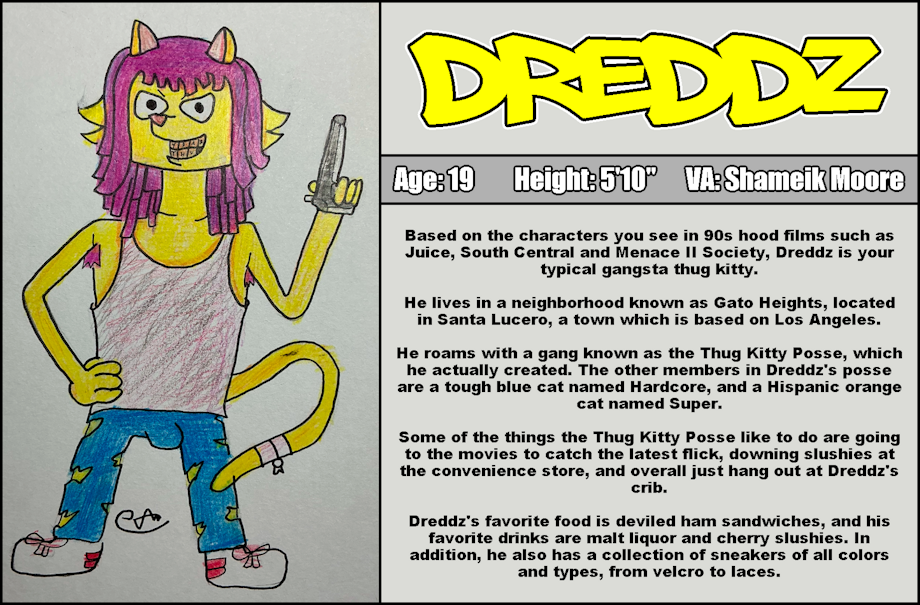 DREDDZ
Age: 19 Height: 5'10" VA: Shameik Moore
Based on the characters you see in 90s hood films such as
Juice, South Central and Menace II Society, Dreddz is your
typical gangsta thug kitty.
He lives in a neighborhood known as Gato Heights, located
in Santa Lucero, a town which is based on Los Angeles.
He roams with a gang known as the Thug Kitty Posse, which
he actually created. The other members in Dreddz's posse
are a tough blue cat named Hardcore, and a Hispanic orange
cat named Super.
Some of the things the Thug Kitty Posse like to do are going
to the movies to catch the latest flick, downing slushies at
the convenience store, and overall just hang out at Dreddz's
crib.
Dreddz's favorite food is deviled ham sandwiches, and his
favorite drinks are malt liquor and cherry slushies. In
addition, he also has a collection of sneakers of all colors
and types, from velcro to laces.